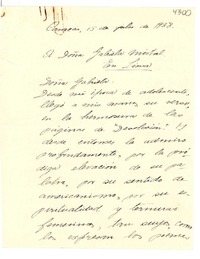 4300
15 de julio de 1938.
A Doña Gabriela Mistral
En Lima
Doña Gabriela:
Desde mi época de adolescente,
llegó a mis manos su verso,
en la hermosura de las
páginas de "Desolación". Y
desde entonces la admiro
profundamente, por la
elevación de su pa-
labra, por su sentido de
americanismo, por su es-
piritualidad y ternura
femenina, tan suya, como
los expresan los